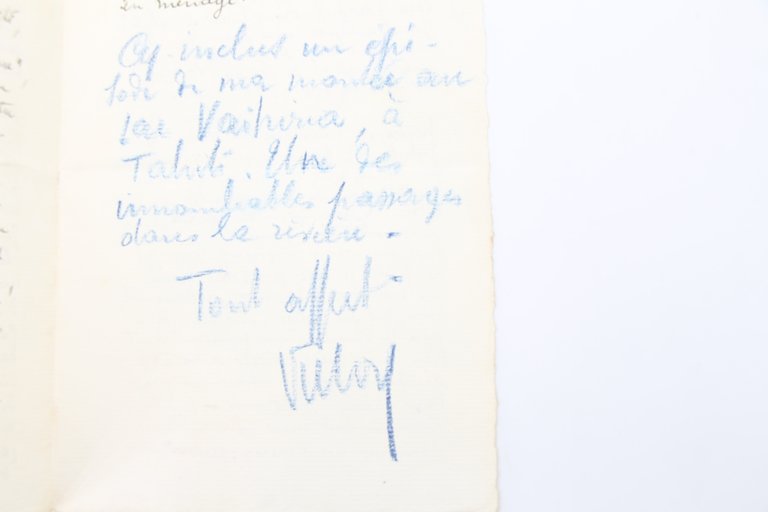 en ménage.
Cy-inclus un épi-
sode de ma montée au
lac Vaihiria, à
Tahiti. Une des
innombrables passages
dans la rivière.
Tout affect.